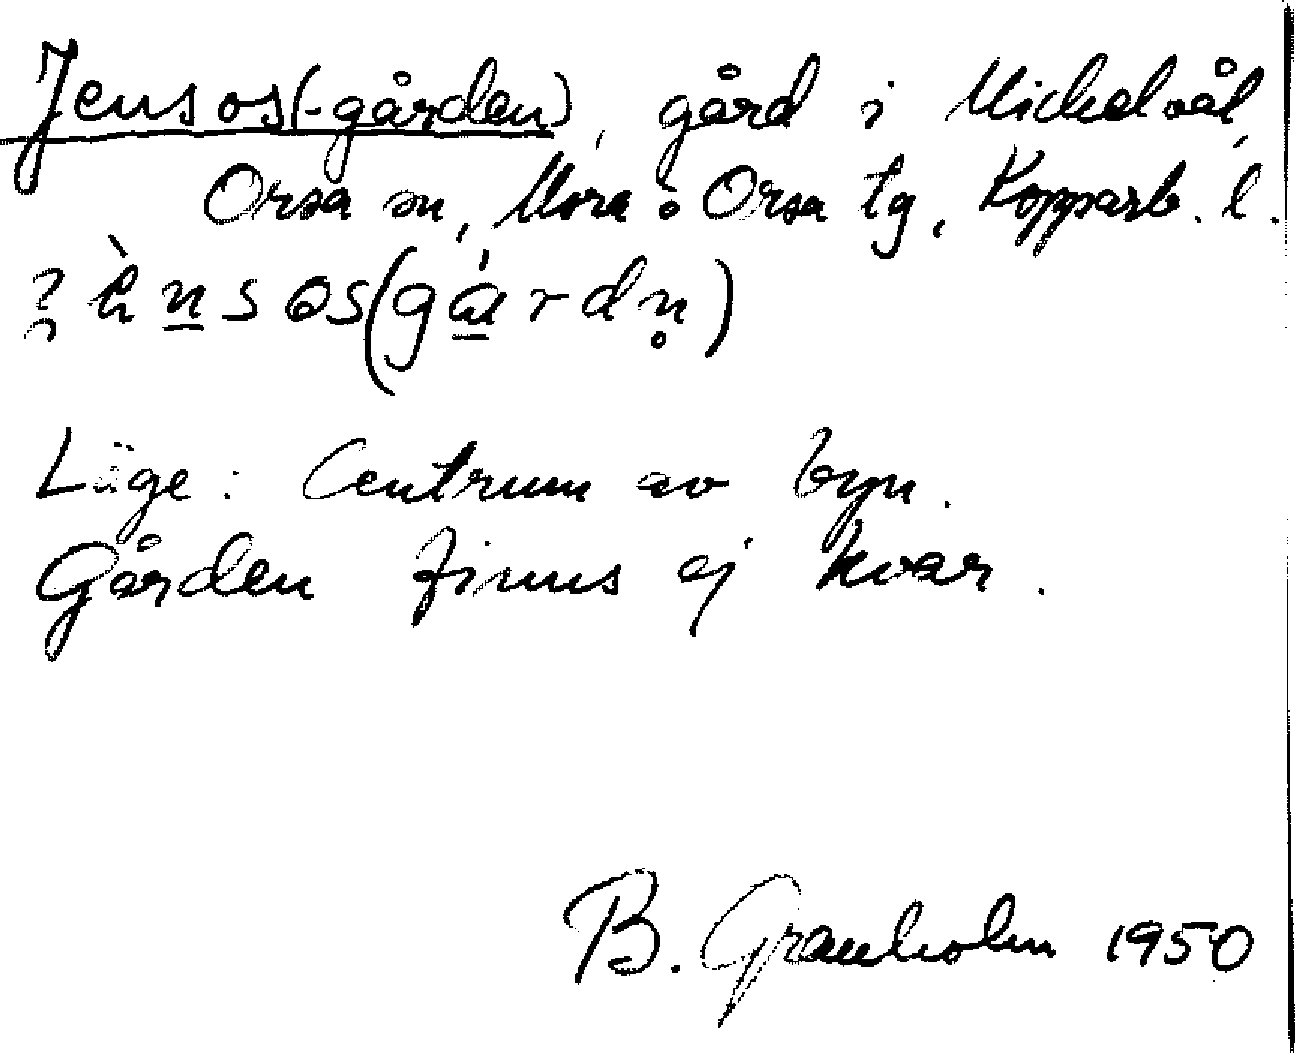 Jensos(-gården), gård i Mickelvål,
Orsa sn, Mora o Orsa tg, Kopparb. l.
ènsos(gárdn̥)
Läge: Centrum av byn.
Gården finns ej kvar.
B. Granholm 1950